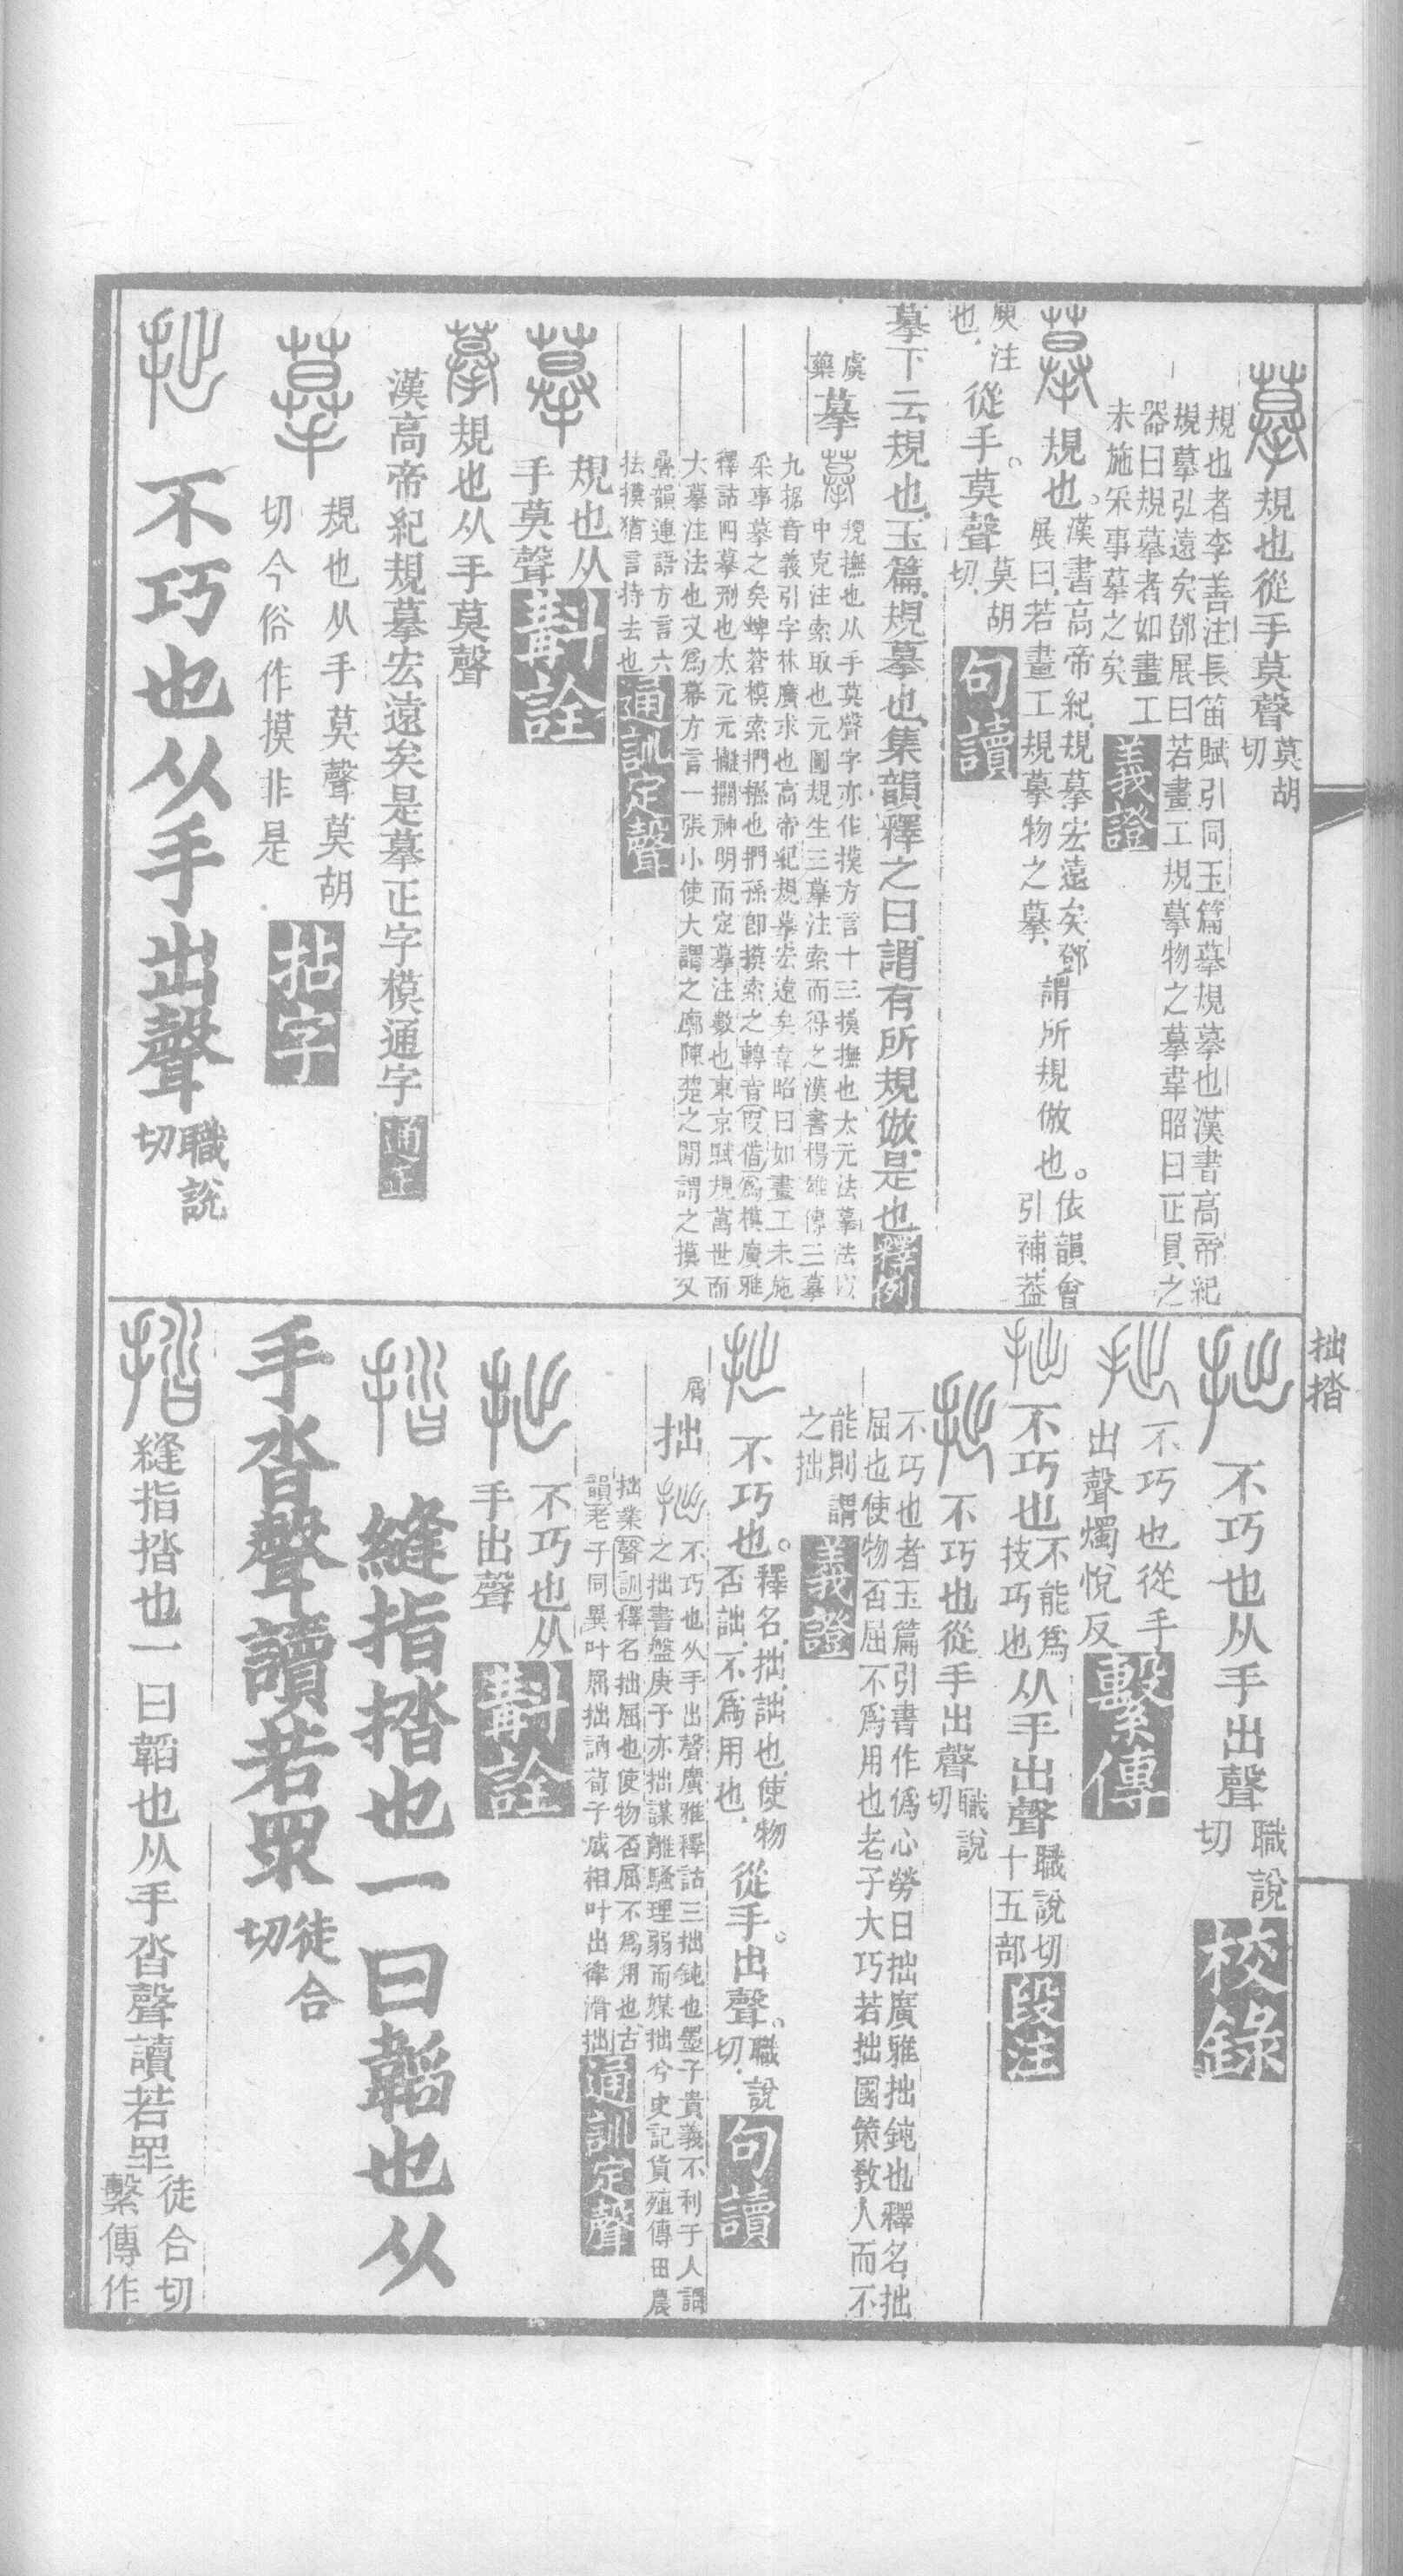 規也從手莫聲莫胡切
規也者李善注長笛賦引同玉篇摹規摹也漢書高帝紀
規摹弘遠矣鄧展曰若畫工規摹物之摹韋昭曰正員之
器曰規摹者如畫工
未施采事摹之矣義證
規也。漢書高帝紀規摹宏遠矣鄧展曰若畫工規摹物之摹謂所規倣也。依韻會引補葢
庾注也從手。莫聲莫胡切句讀
摹下云規也玉篇規摹也集韻釋之曰謂有所規倣是也釋例
虞藥摹
規撫也从手莫聲字亦作摸方言十三摸撫也太元法摹法以
中克注索取也元圖規生三摹注索而得之漢書楊雄傳三摹
九据音義引字林廣求也高帝紀規摹宏遠矣韋昭曰如畫工未施
采事摹之矣埤蒼摸索捫摸也捫孫卽摸索之轉音叚借爲模廣雅
釋詁四摹刑也太元元攡攔神明而定摹注數也東京賦規萬世而
大摹注法也又爲幕方言一張小使大謂之廓陳楚之閒謂之摸又
疊韻連語方言六
抾摸猶言持去也通訓定聲
規也从手莫聲斠詮
規也从手莫聲
漢高帝紀規摹宏遠矣是摹正字模通字通正
規也从手莫聲莫胡
切今俗作摸非是拈字
不巧也从手出聲職說切
拙揩
不巧也从手出聲職說切校錄
不巧也從手出聲燭悅反繫傳
不巧也不能爲技巧也从手出聲職說切十五部段注
不巧也從手出聲職說切
不巧也者玉篇引書作僞心勞日拙廣雅拙鈍也釋名拙
屈也使物否屈不爲用也老子大巧若拙國策敎人而不
能則謂之拙義證
不巧也。釋名拙詘也使物否詘不爲用也從手。出聲。職說切句讀
屑拙
不巧也从手出聲廣雅釋詁三拙鈍也墨子貴義不利于人謂
之拙書盤庚予亦拙謀離騷理弱而媒拙兮史記貨殖傳田農
拙業聲訓釋名拙屈也使物否屈不爲用也古
韻老子同異叶屈拙訥荀子成相叶出律滑拙通訓定聲
不巧也从手出聲斠詮
縫指揩也一曰韜也从
手沓聲讀若眔徒合切
縫指揩也一曰韜也从手沓聲讀若眔徒合切繫傳作